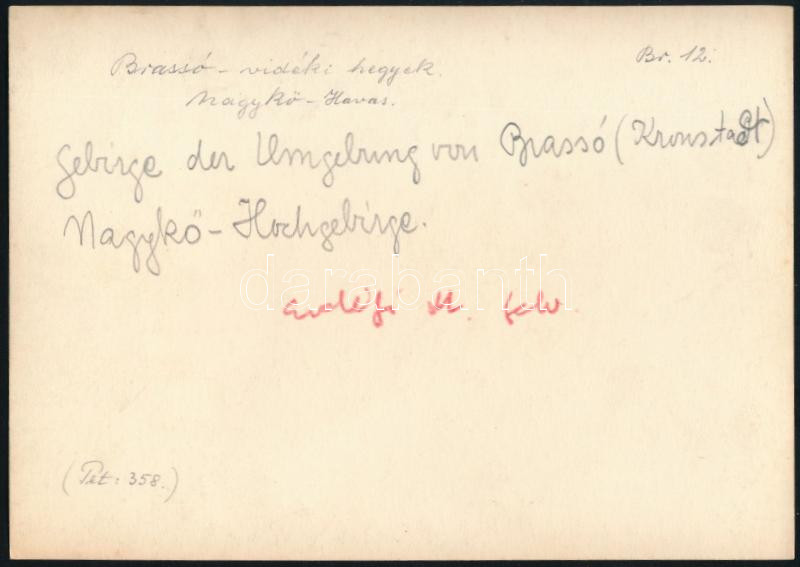 Brassó - vidéki hegyek. Br. 12.
Nagykő - Havas.
Gebirge der Umgebung von Brassó (Kronstadt)
Nagykő - Hochgebirge.
darabanth
Erdélyi M. felv.
(Pét: 358.)